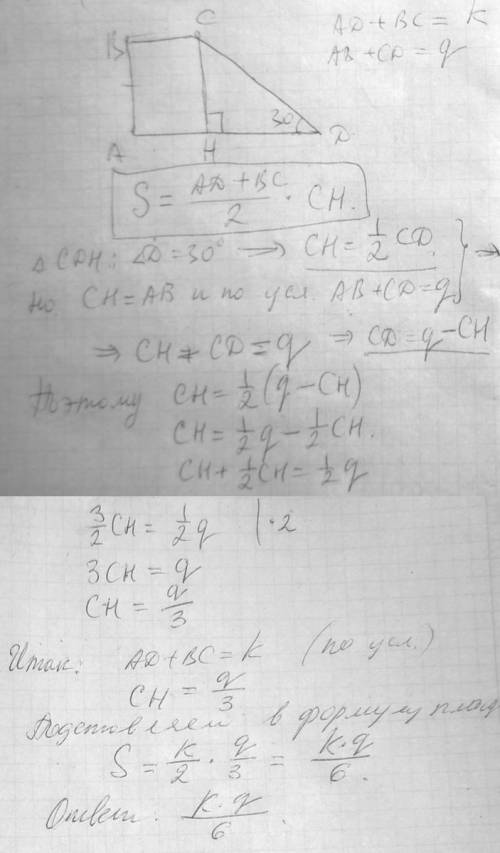 B C
A H D
30°
AD + BC = k
AB + CD = q
S = (AD + BC)/2 · CH.
△ CDH: ∠D = 30° → CH = 1/2 CD.
но CH = AB и по усл. AB + CD = q } ⇒
⇒ CH + CD = q ⇒ CD = q − CH
Поэтому CH = 1/2 (q − CH)
CH = 1/2 q − 1/2 CH.
CH + 1/2 CH = 1/2 q
3/2 CH = 1/2 q | · 2
3CH = q
CH = q/3
Итак: AD + BC = k (по усл.)
CH = q/3
Подставляем в формулу площ
S = k/2 · q/3 = k·q/6.
Ответ: k·q/6.